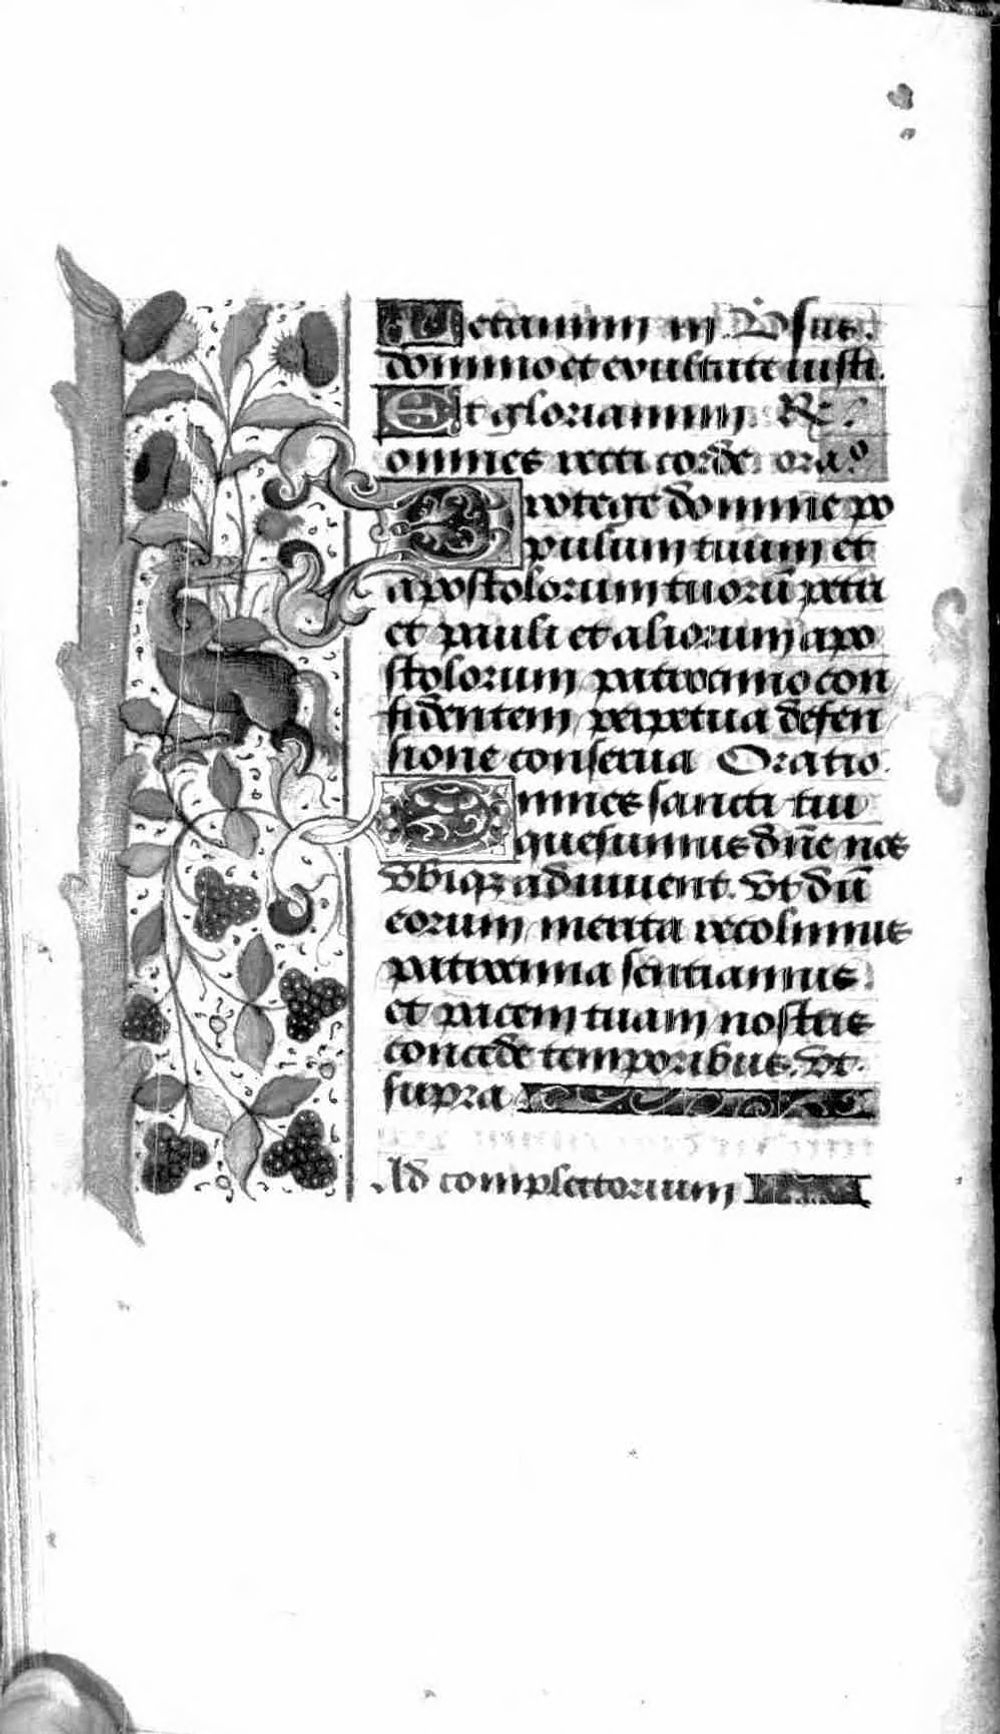 Letamini in. Vsus.
domino et exultate iusti.
Et gloriamini. R.
omnes recti corde. ora°
Protege domine po
pulum tuum et
apostolorum tuorū petri
et pauli et aliorum apo
stolorum patrocinio con
fidentem perpetua defen
sione conserua Oratio.
Omnes sancti tui
quesumus dñe nos
vbiqꝫ adiuuent. vt dū
eorum merita recolimus
patrocinia sentiamus.
et pacem tuam nostris
concede temporibus. vt.
supra
Ad completorium